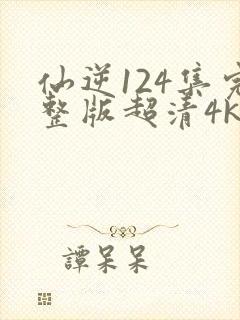 仙逆124集完
整版超清4K
譚呆呆